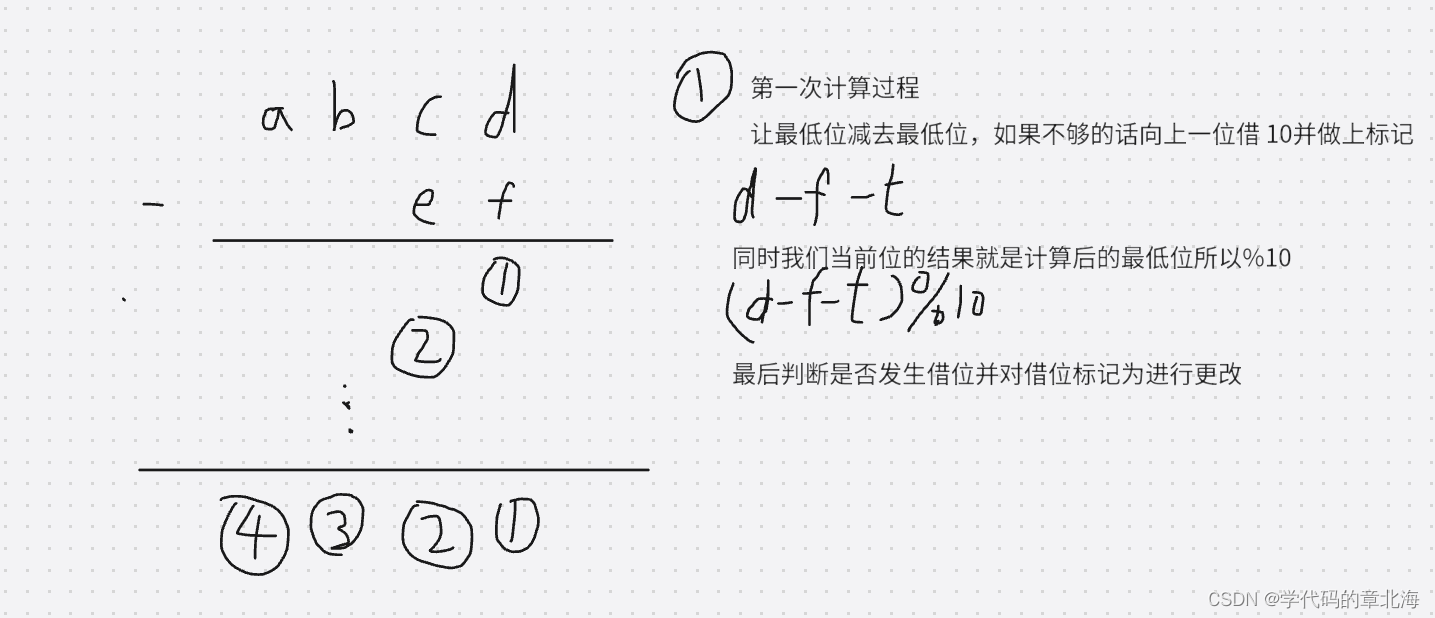 a b c d
- e f
①
②
④ ③ ② ①
① 第一次计算过程
让最低位减去最低位，如果不够的话向上一位借 10并做上标记
d-f-t
同时我们当前位的结果就是计算后的最低位所以%10
(d-f-t)%10
最后判断是否发生借位并对借位标记为进行更改
CSDN @学代码的章北海